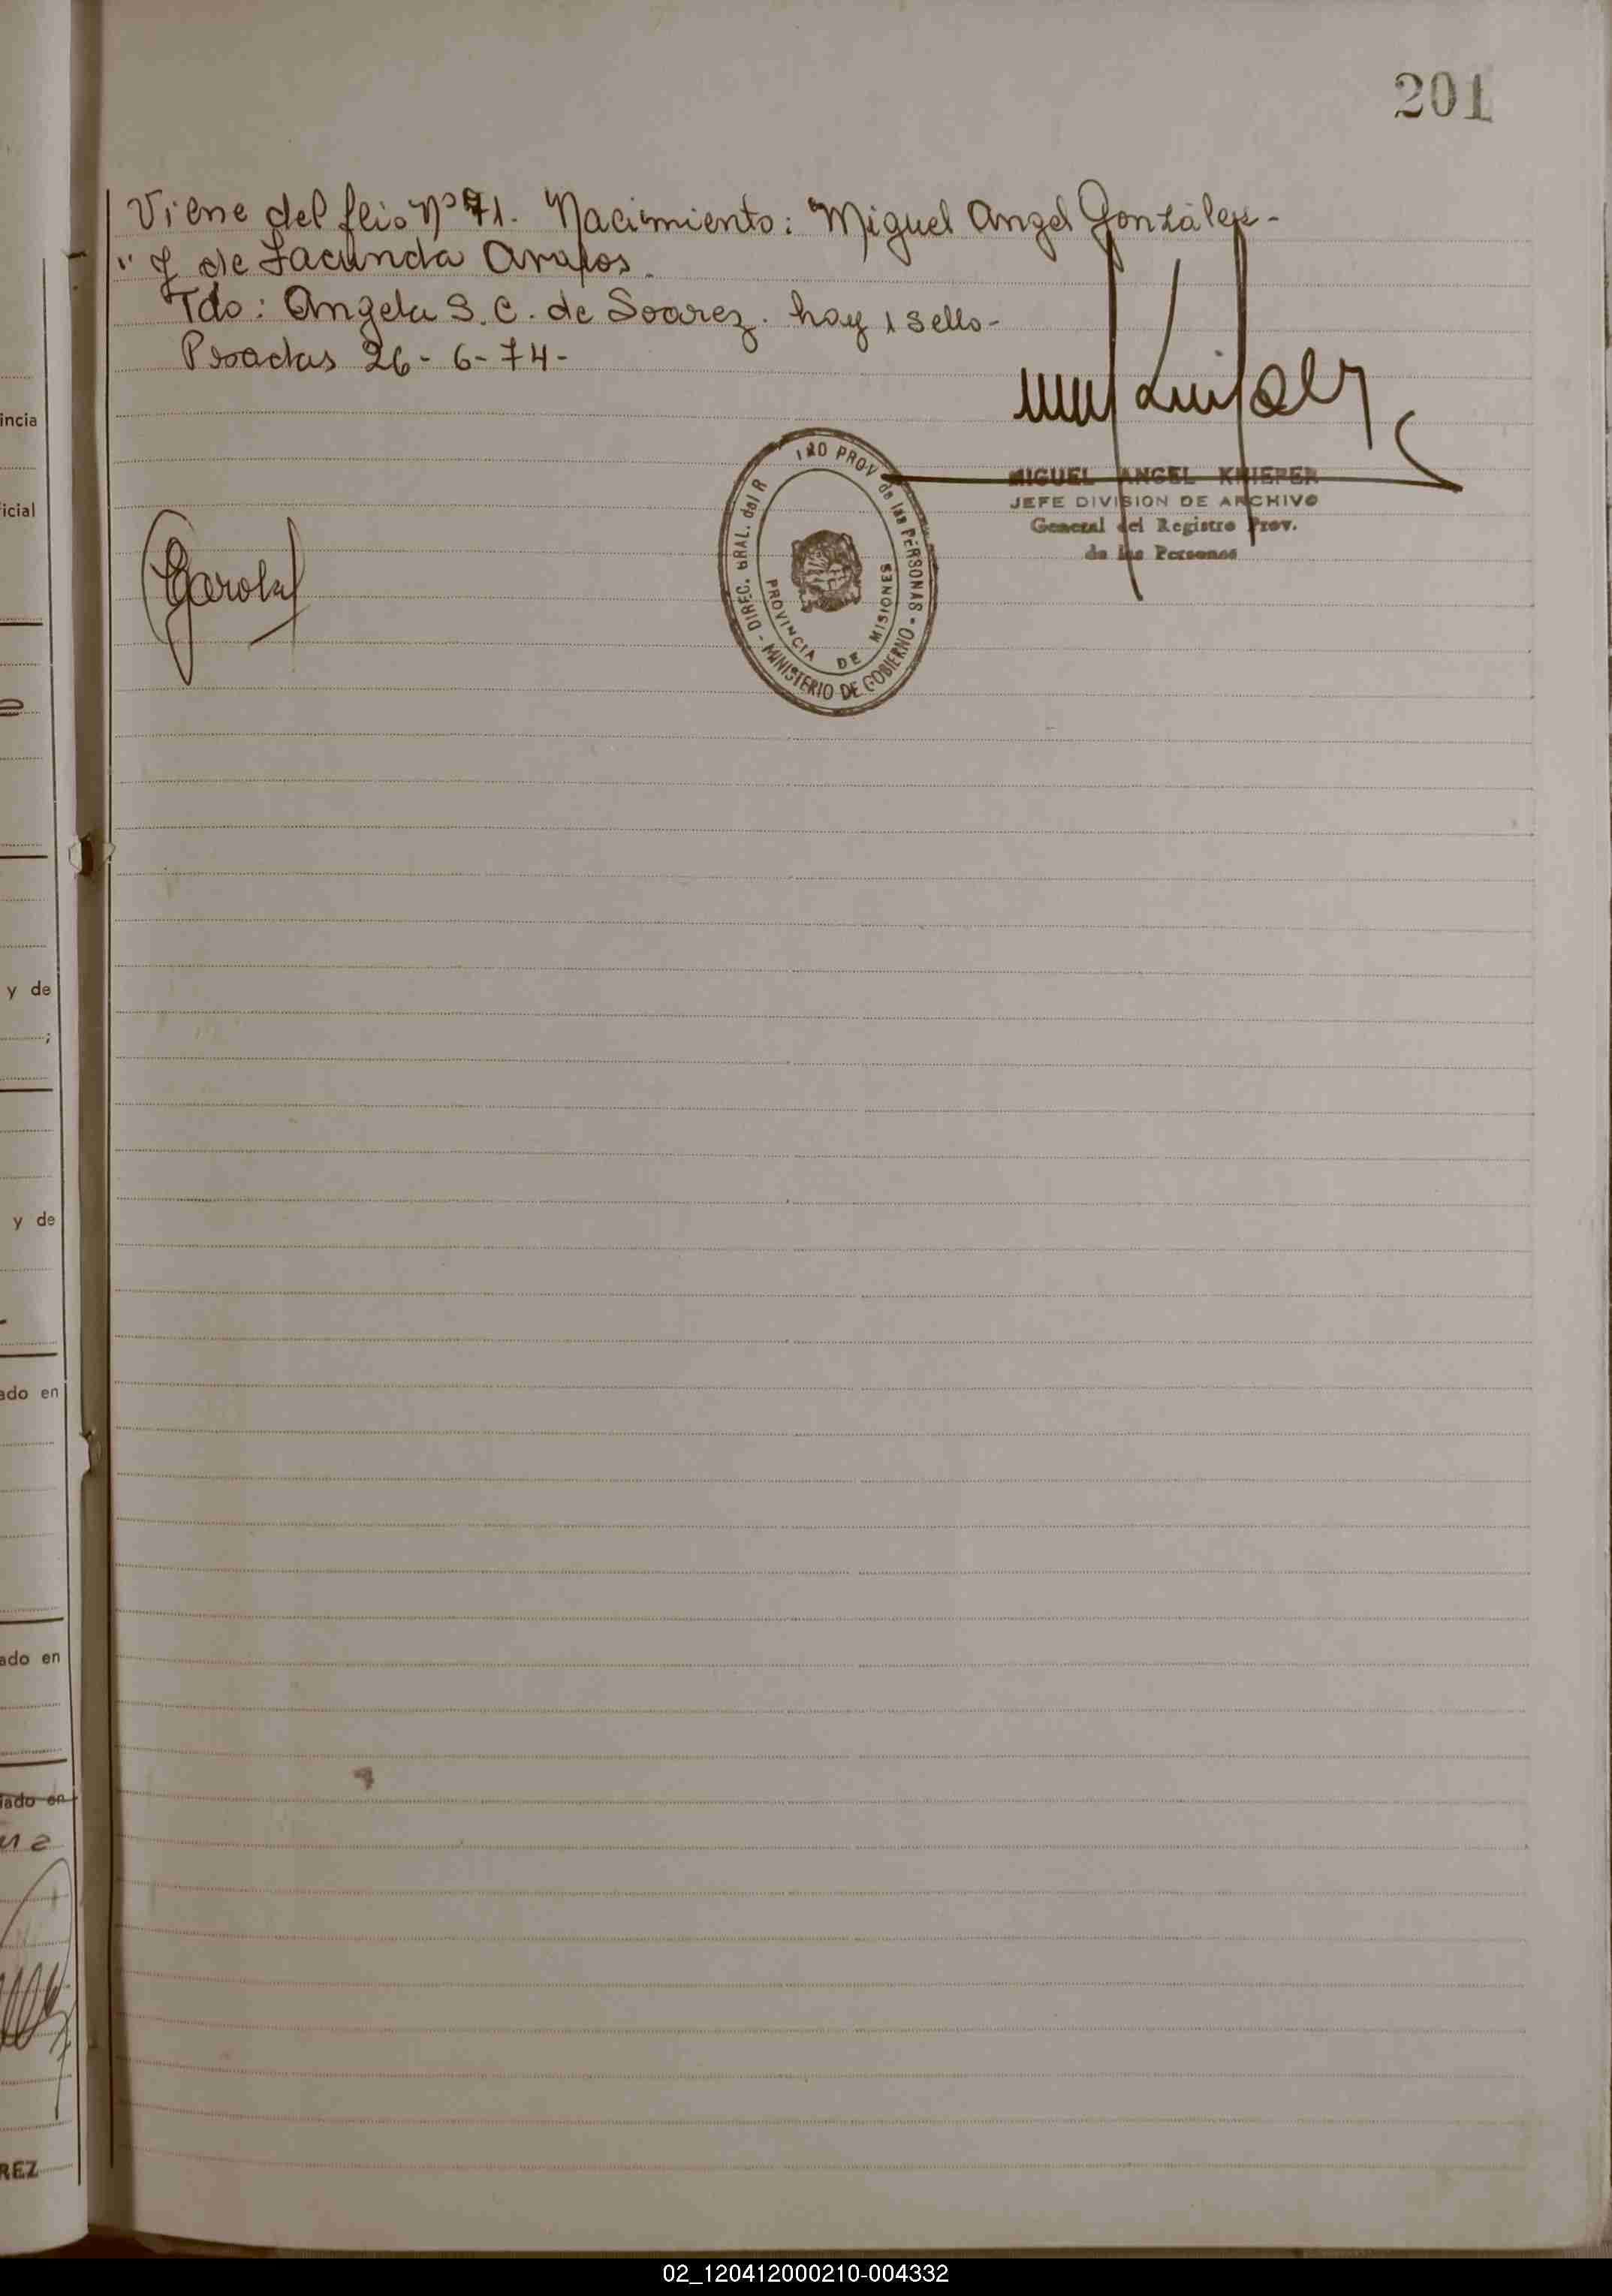 201
Viene del flio nº 71. Nacimiento: "Miguel Angel González-
" y de Facunda Avalos.
Tdo: Angela S. C. de Soarez. hay 1 sello-
Posadas 26-6-74-
MIGUEL ANGEL KNIEPER
JEFE DIVISION DE ARCHIVO
General del Registro Prov.
de las Personas
DIREC. GRAL. del R TRO PROV de las PERSONAS - MINISTERIO DE GOBIERNO -
PROVINCIA DE MISIONES
incia
icial
y de
;
y de
ado en
ado en
iado en
REZ
02_120412000210-004332